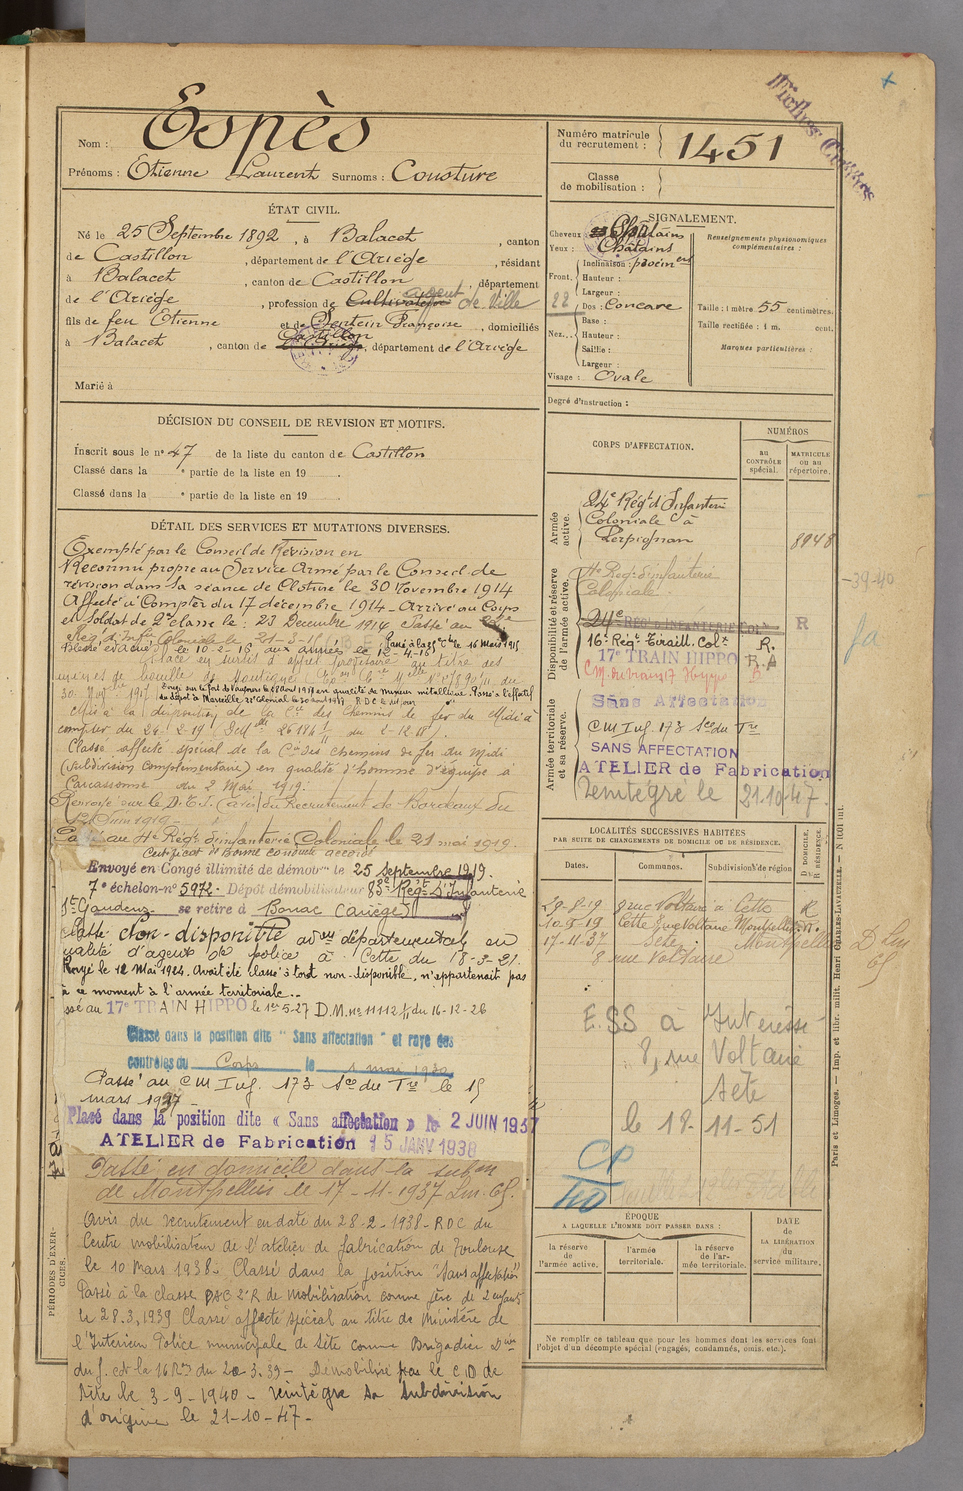 Fiches Créées
Nom : Espès
Prénoms : Etienne Laurent Surnoms : Cousture
Numéro matricule du recrutement : 1451
Classe de mobilisation :
ÉTAT CIVIL.
Né le 25 Septembre 1892, à Balacet, canton
de Castillon, département de l'Ariège, résidant
à Balacet, canton de Castillon, département
de l'Ariège, profession de Cultivateur agent de Ville
fils de feu Etienne et de Sentein Françoise, domiciliés
Castillon
à Balacet, canton de l'Ariège, département de l'Ariège
Marié à
SIGNALEMENT.
Cheveux Châtains
Yeux : Châtains
Inclinaison : proémen
Front. Hauteur :
Largeur :
22
Dos : Concave
Base :
Nez... Hauteur :
Saillie :
Largeur :
Visage : Ovale
Renseignements physionomiques complémentaires :
Taille : 1 mètre 55 centimètres.
Taille rectifiée : 1 m. cent.
Marques particulières :
Degré d'instruction :
DÉCISION DU CONSEIL DE REVISION ET MOTIFS.
Inscrit sous le n° 47 de la liste du canton de Castillon
Classé dans la e partie de la liste en 19 .
Classé dans la e partie de la liste en 19 .
DÉTAIL DES SERVICES ET MUTATIONS DIVERSES.
Exempté par le Conseil de Révision en
Reconnu propre au Service Armé par le Conseil de
révision dans sa séance de Clôture le 30 Novembre 1914
Affecté à Compter du 17 décembre 1914 - Arrivé au Corps
et Soldat de 2e classe le : 23 Décembre 1914 Passé au
Reg. d'Inf. Coloniale le 21-3-15
Blessé évacué le 10-2-16 aux armées le 12-4-16 Passé à la 35e Cie le 16 Mars 1915
Placé en sursis d'appel provisoire au titre des
mines de houille de
30 1917
du dépôt à Marseille 22e Colonial le 30 août 1917
Mis à la disposition de la Cie des Chemins de fer du Midi à
compter du 24-2-19
Classé affecté spécial de la Cie des chemins de fer du Midi
(Subdivision complémentaire) en qualité d'homme d'équipe à
Carcassonne du 2 Mai 1919.
Renvoyé sur le D.T.I. (avis) du Recrutement de Bordeaux du
12 Juin 1919 -
Passé au 4e Rég. d'infanterie Coloniale le 21 mai 1919.
Certificat de Bonne conduite accordé
Envoyé en Congé illimité de démobon le 25 septembre 1919.
7e échelon-n° 5972- Dépôt démobilisateur 83e Régt d'Infanterie
St Gaudens se retire à Bonac (Ariège)
Classé Non-disponible départementales en
qualité d'agent de police à Cette du 18-3-21.
Rayé le 12 Mai 1924. Avait été classé à tort non-disponible, n'appartenait pas
à ce moment à l'armée territoriale..
Passé au 17e TRAIN HIPPO le 1er-5-27 D.M. n° 11112 du 16-12-26
Classé dans la position dite "Sans affectation" et rayé des
contrôles du Corps le 1 mai 1932
Passé au CM Inf. 173 Sce du Tre le 15
mars 1937
Placé dans la position dite « Sans affectation » le 2 JUIN 1937
ATELIER de Fabrication 15 JANV 1938
Passé en domicile dans la subon
de Montpellier le 17-11-1937 Lm. 65.
Avis du recrutement en date du 28-2-1938 - RDC du
Centre mobilisateur de l'atelier de fabrication de Toulouse
le 10 Mars 1938. Classé dans la position "Sans affectation"
Passé à la classe 2e R de mobilisation comme père de 2 enfants
le 28.3.1939 Classé affecté spécial au titre du Ministère de
l'Intérieur Police municipale de Sète comme Brigadier Don
du G. Ct la 16 Ron du 20-3.39 - Démobilisé par le C.D. de
Sète le 3-9-1940 - réintègre sa subdivision
d'origine le 21-10-47 -
PÉRIODES D'EXERCICES.
CORPS D'AFFECTATION.
NUMÉROS
au CONTRÔLE spécial.
MATRICULE ou au répertoire.
Armée active.
24e Régt d'Infanterie
Coloniale à
Perpignan
8948
Disponibilité et réserve de l'armée active.
4e Reg. d'infanterie
Coloniale.
24e RÉGt D'INFANTERIE COLle R
16e Régt Tiraill. Colx R.
17e TRAIN HIPPO R.A
C.M. du train 17 Hippo R
Armée territoriale et sa réserve.
Sans Affectation
CM Inf. 173 Sce du Tre
SANS AFFECTATION
ATELIER de Fabrication
réintègre le 21-10-47.
-39-40
fa
LOCALITÉS SUCCESSIVES HABITÉES
PAR SUITE DE CHANGEMENTS DE DOMICILE OU DE RÉSIDENCE.
Dates. Communes. Subdivisions de région D. DOMICILE, R. RÉSIDENCE.
29-8-19 8 rue Voltaire à Cette R
10-9-19 Cette 8 rue Voltaire Montpellier
17-11-37 Sète Montpellier D Lm 65
8 rue Voltaire
E. SS à Intéressé
8, rue Voltaire
Sète
le 18-11-51
CP
40
ÉPOQUE
A LAQUELLE L'HOMME DOIT PASSER DANS :
la réserve de l'armée active.
l'armée territoriale.
la réserve de l'armée territoriale.
DATE de LA LIBÉRATION du service militaire.
Ne remplir ce tableau que pour les hommes dont les services font
l'objet d'un décompte spécial (engagés, condamnés, omis, etc.).
Paris et Limoges. — Imp. et libr. milit. Henri CHARLES-LAVAUZELLE. — N